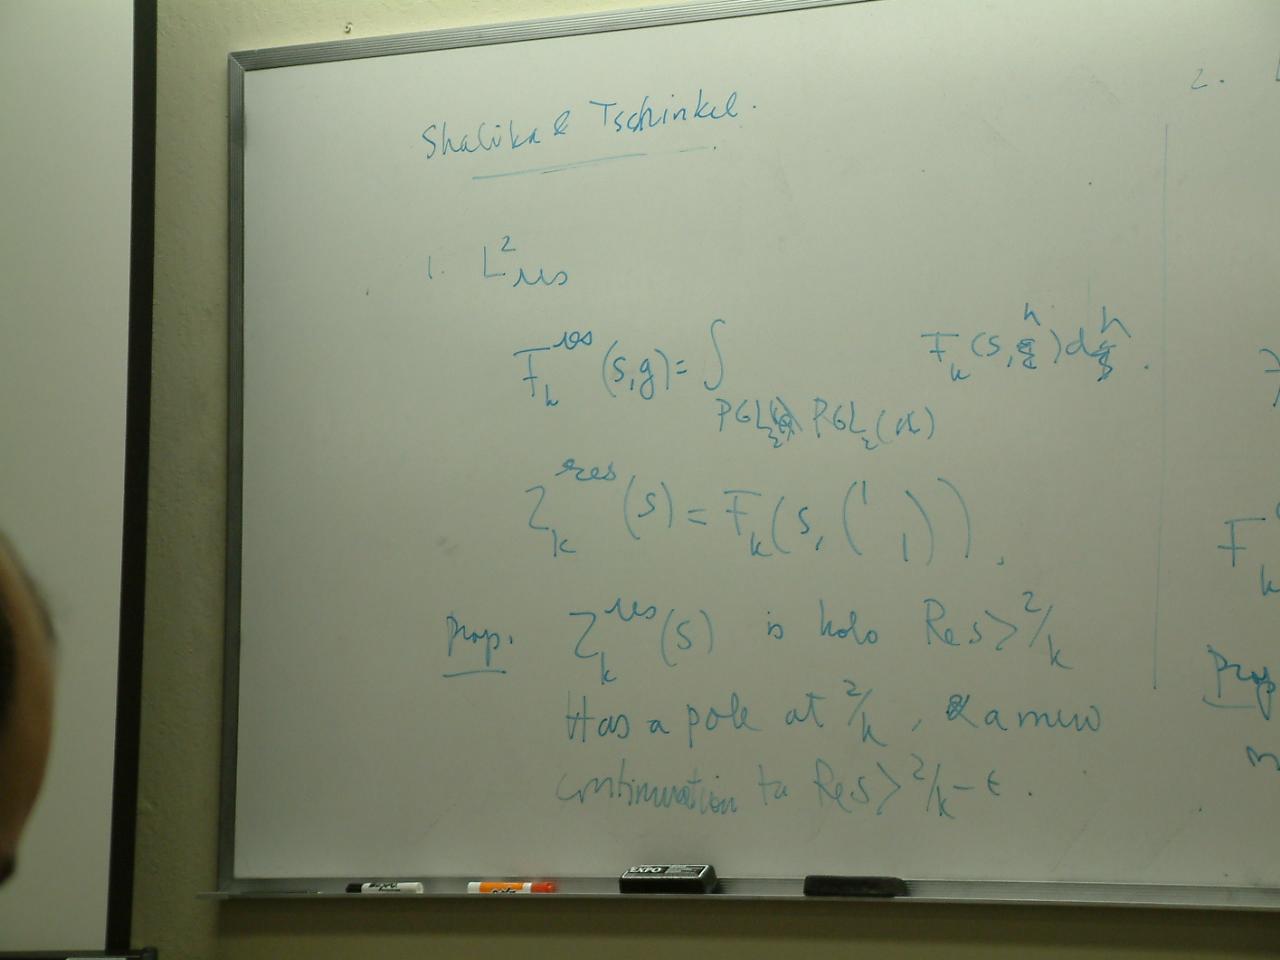 Shalika & Tschinkel.
1. L²res
F_k^res (s,g) = ∫_{PGL₂(k)\PGL₂(A)} F_k(s, h) dh.
Z_k^res (s) = F_k(s, (1 1)).
Prop. Z_k^res (s) is holo Re s > 2/k
Has a pole at 2/k, & a mero
continuation to Re s > 2/k - ε.
2.
F_k
Prop
EXPO